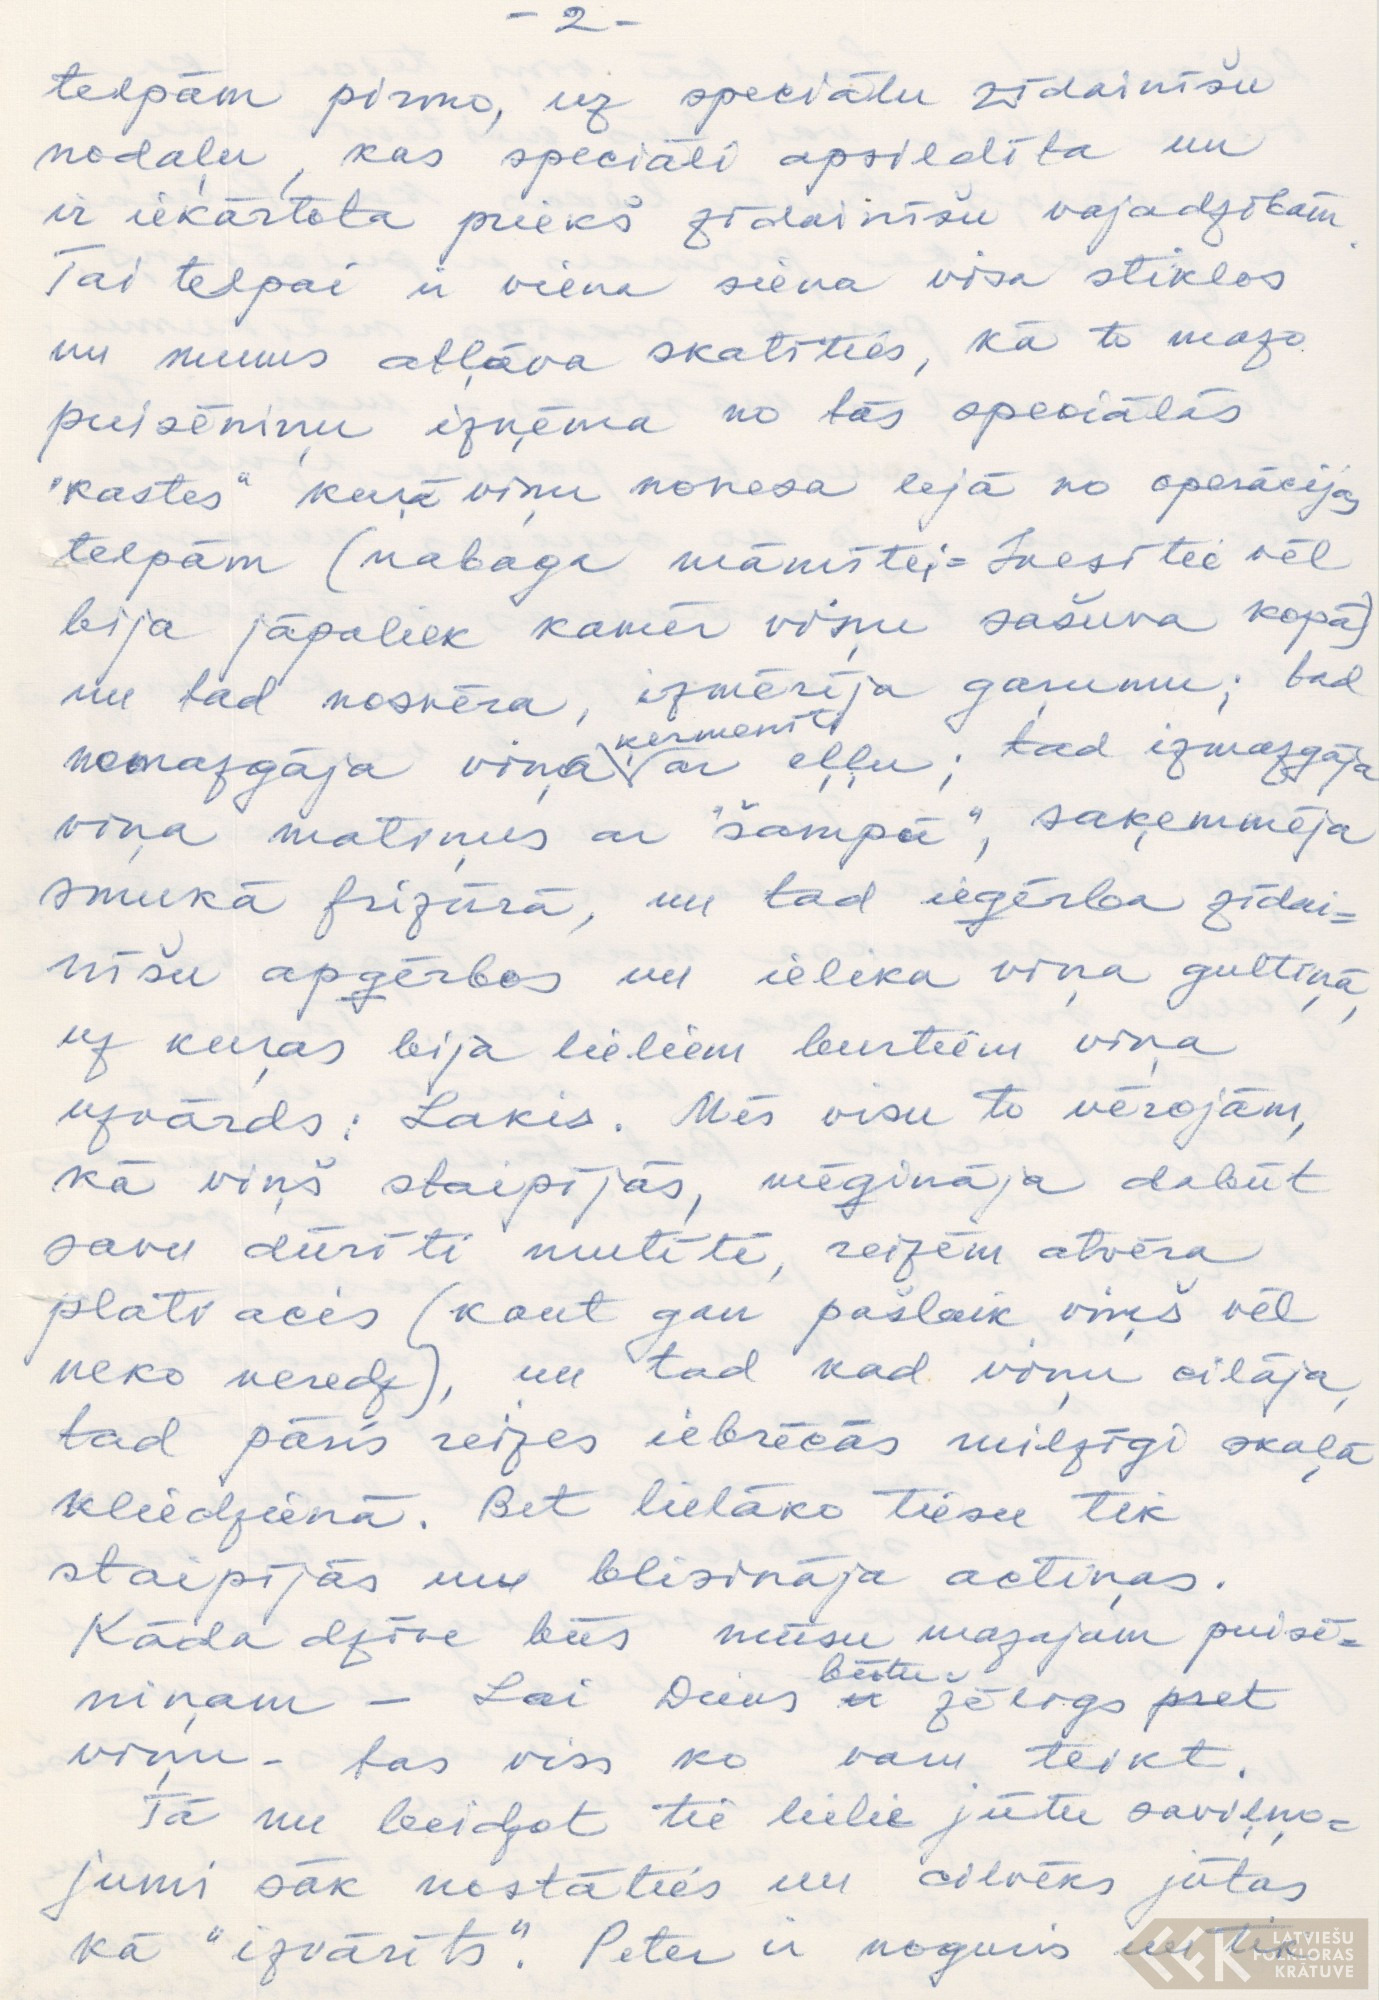 - 2 -
telpām pirmo, uz speciālu zīdainīšu
nodaļu, kas speciāli apsildīta un
ir iekārtota priekš zīdainīšu vajadzībām.
Tai telpai ir viena siena visa stiklos
un mums atļāva skatīties, kā to mazo
puisēniņu izņēma no tās speciālās
"kastes" kuŗā viņu nonesa lejā no operācijas
telpām (nabaga māmītei = Inesītei vēl
bija jāpaliek kamēr viņu sašuva kopā)
un tad nosvēra, izmērīja gaŗumu; tad
nomazgāja viņa ķermenīti ar eļļu; tad izmazgāja
viņa matiņus ar "šampū", saķemmēja
smukā frizūrā, un tad ieģērba zīdai=
nīšu apģērbos un ielika viņa gultiņā,
uz kuŗas bija lieliem burtiem viņa
uzvārds: Lakis. Mēs visu to vērojām,
kā viņš staipījās, mēģināja dabūt
savu dūrīti mutītē, reizēm atvēra
plati acis (kaut gan pašlaik viņš vēl
neko neredz), un tad kad viņu cilāja,
tad pāris reizes iebrēcās milzīgi skaļā
kliedzienā. Bet lielāko tiesu tik
staipījās un blisināja actiņas.
Kāda dzīve būs mūsu mazajam puisē=
niņam – Lai Dievs būtu žēlīgs pret
viņu – tas viss ko varu teikt.
Tā nu beidzot tie lielie jūtu saviļņo=
jumi sāk nostāties un cilvēks jūtas
kā "izvārīts". Peter ir noguris un tik
LATVIEŠU
FOLKLORAS
KRĀTUVE